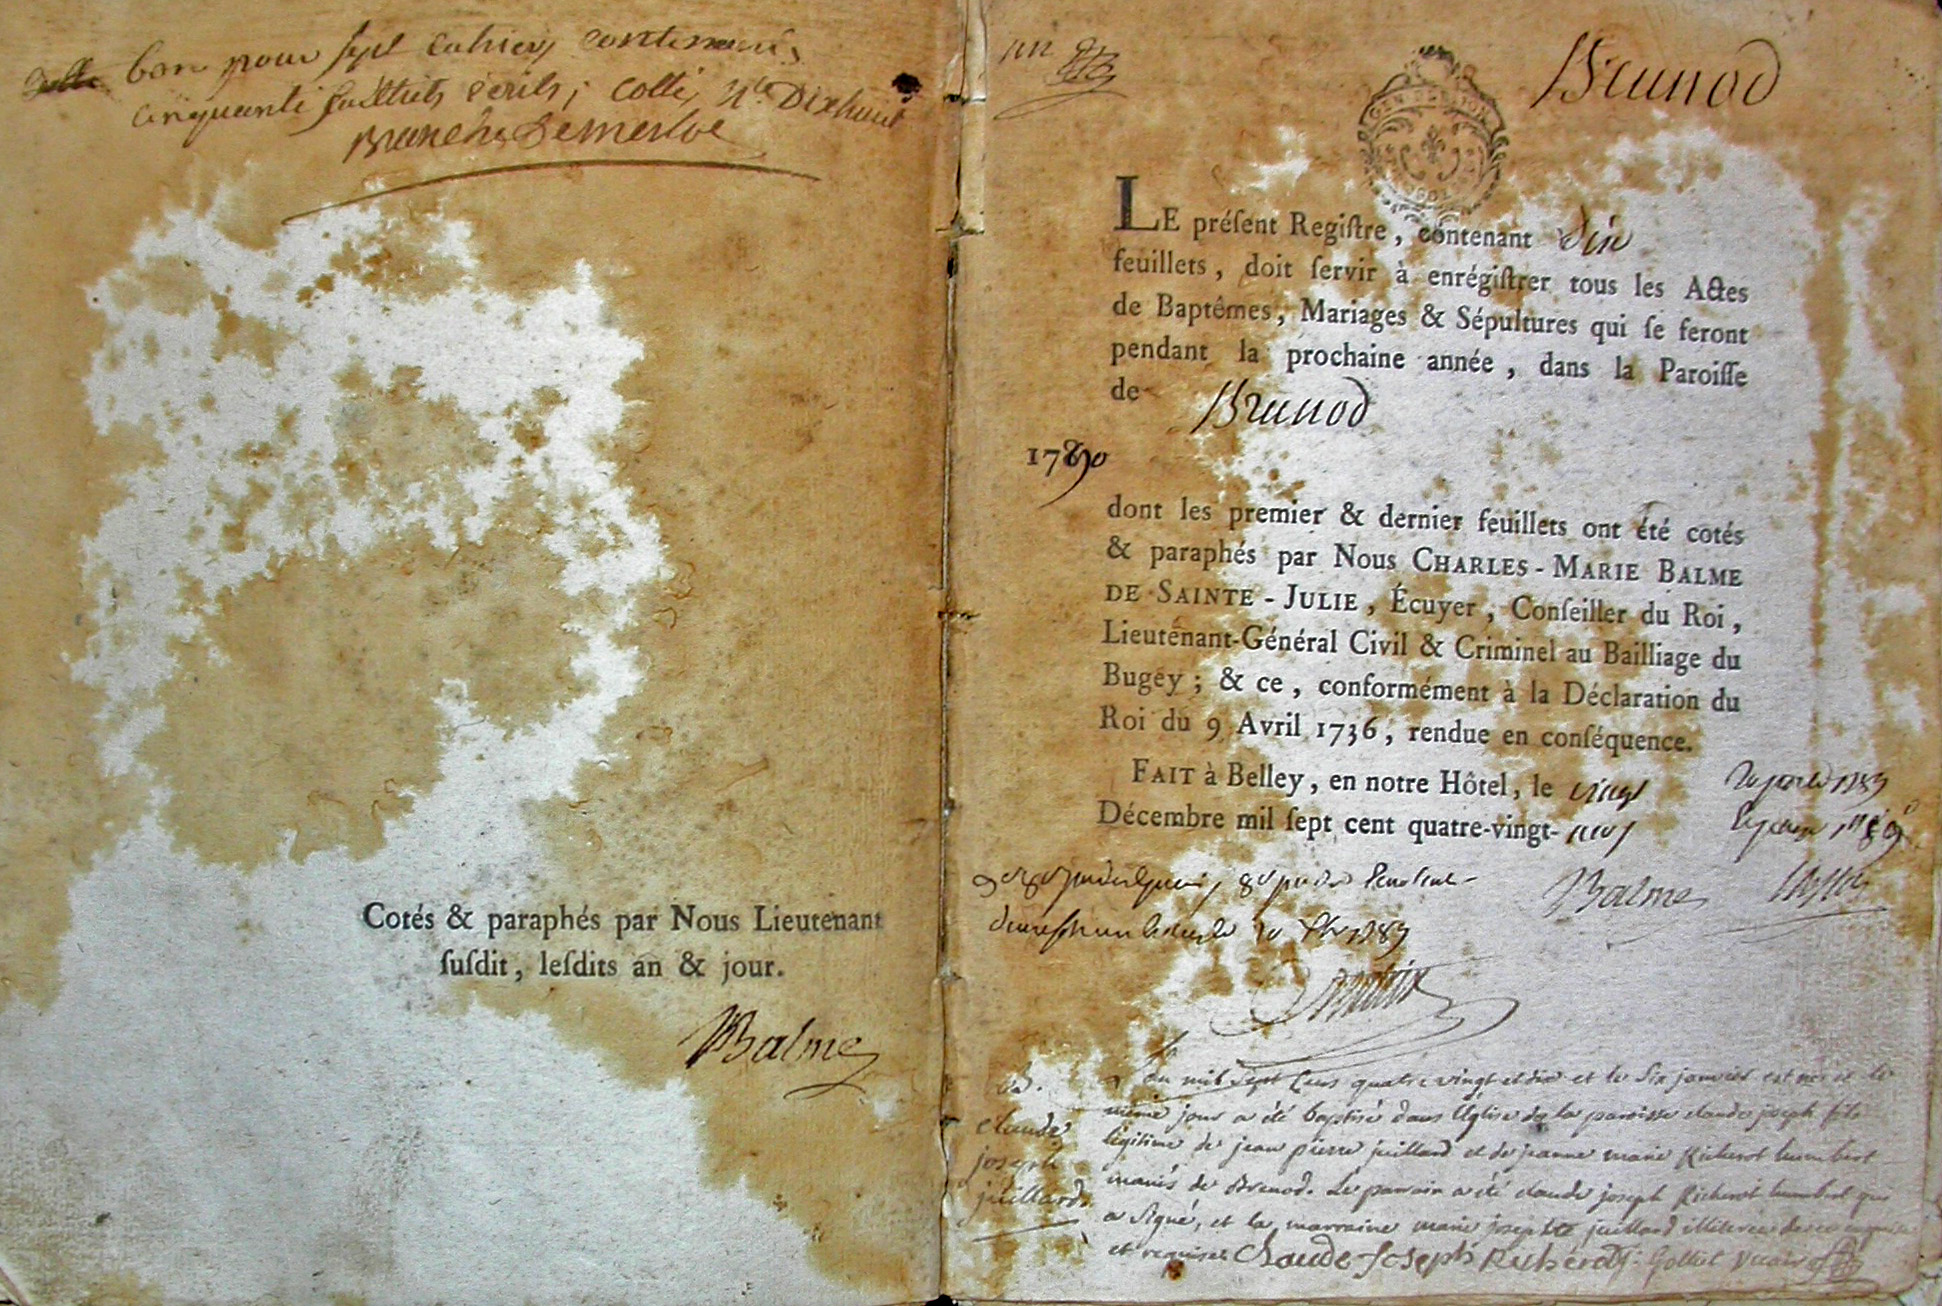 bon pour sept cahiers contenants
cinquante huit feuillets écrits; cotte, Dixhuit
un
Brunod
LE préſent Regiſtre, contenant dix
feuillets, doit ſervir à enrégiſtrer tous les Actes
de Baptêmes, Mariages & Sépultures qui ſe feront
pendant la prochaine année, dans la Paroiſſe
de Brunod
1790
dont les premier & dernier feuillets ont été cotés
& paraphés par Nous CHARLES-MARIE BALME
DE SAINTE-JULIE, Écuyer, Conſeiller du Roi,
Lieutenant-Général Civil & Criminel au Bailliage du
Bugey; & ce, conformément à la Déclaration du
Roi du 9 Avril 1736, rendue en conſéquence.
FAIT à Belley, en notre Hôtel, le vingt
Décembre mil ſept cent quatre-vingt-neuf
Balme
Cotés & paraphés par Nous Lieutenant
ſuſdit, leſdits an & jour.
Balme
claude
joseph
juillard
L'an mil sept cens quatre vingt et dix et le six janvier est né et le
même jour a été baptisé dans l'église de la paroisse claude joseph fils
légitime de jean pierre juillard et de jeanne marie Richerot humbert
mariés de Brenod. Le parrain a été claude joseph Richerot humbert qui
a signé, et la marraine marie josephte juillard illiterée de ce enquise
et requise. Claude Joseph Richerot Gollet vicaire